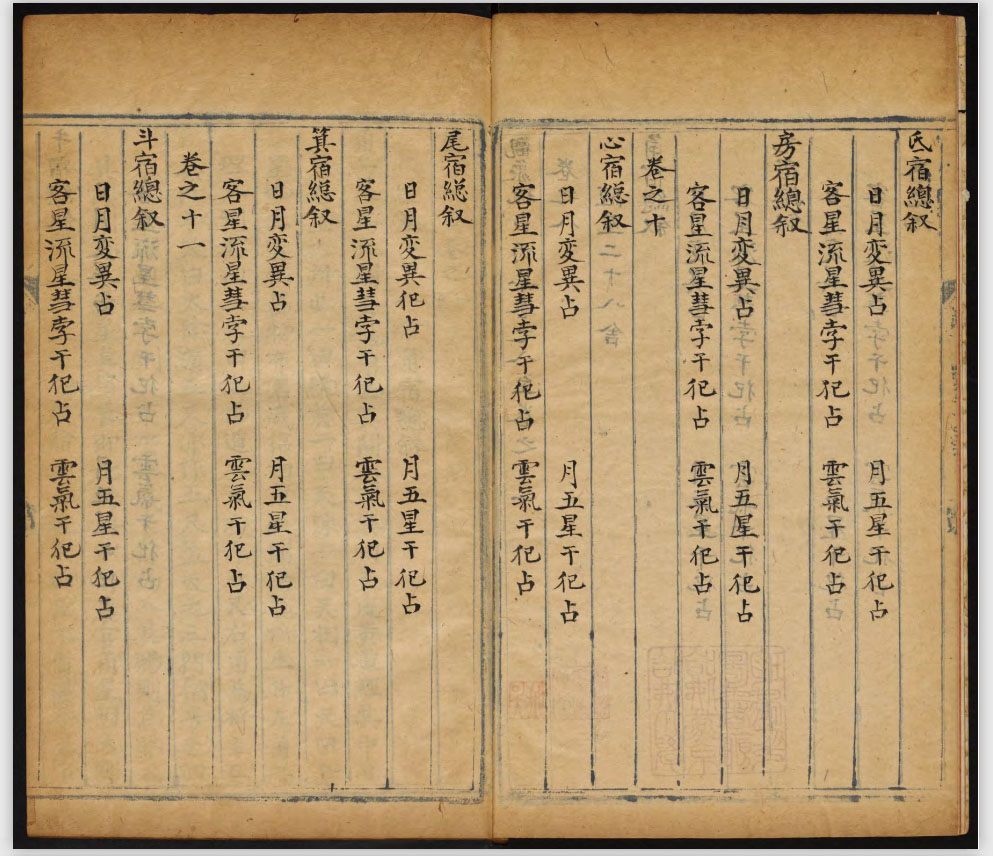 氐宿總叙
日月変異占 月五星干犯占
客星流星彗孛干犯占 雲氣干犯占
房宿總叙
日月変異占 月五星干犯占
客星流星彗孛干犯占 雲氣干犯占
卷之十
心宿總叙
日月変異占 月五星干犯占
客星流星彗孛干犯占 雲氣干犯占
尾宿総叙
日月変異犯占 月五星干犯占
客星流星彗孛干犯占 雲氣干犯占
箕宿總叙
日月変異占 月五星干犯占
客星流星彗孛干犯占 雲氣干犯占
卷之十一
斗宿總叙
日月変異占 月五星干犯占
客星流星彗孛干犯占 雲氣干犯占